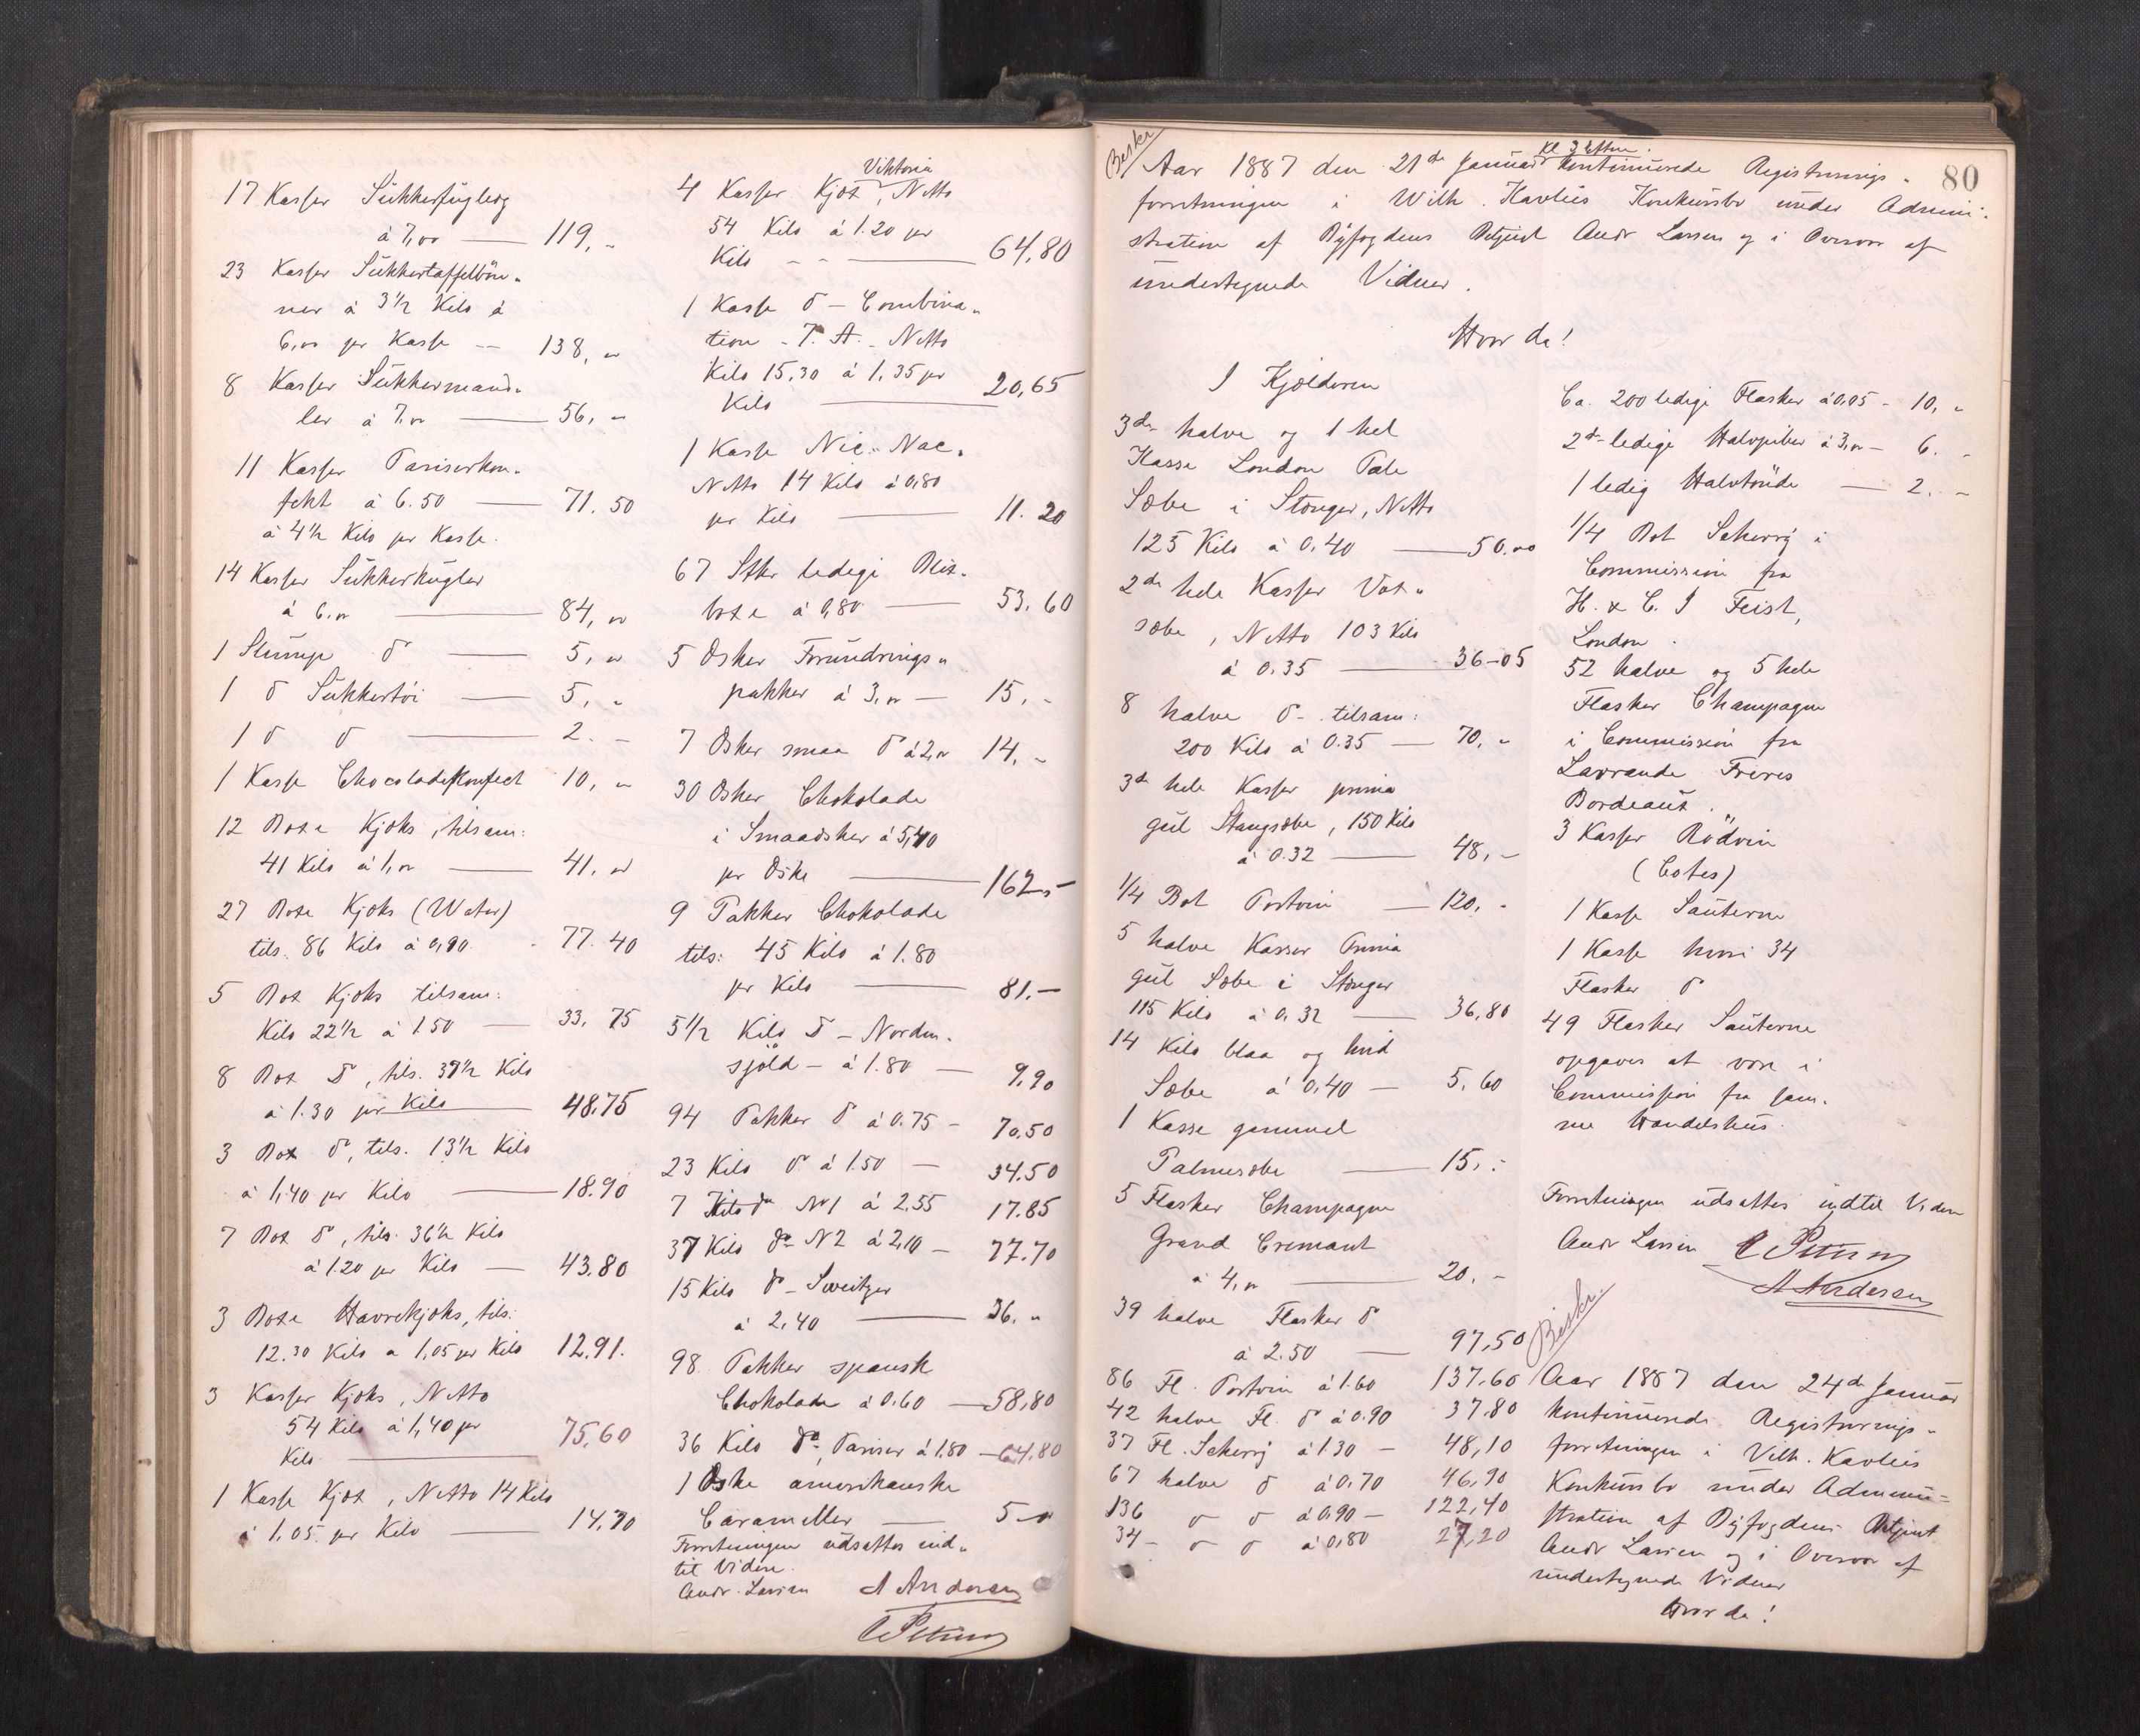 17 Kasser Sukkerfugleæg
à 7,00 — 119, "
23 Kasser Sukkertaffelbøn-
ner à 3 1/2 Kilo à
6,00 pr Kasse -- 138, "
8 Kasser Sukkermand-
ler à 7,00 — 56, "
11 Kasser Pariserkon-
fekt à 6.50 — 71.50
à 4 1/2 Kilo pr Kasse.
14 Kasser Sukkerkugler
à 6,00 — 84, 00
1 Slump do — 5, "
1 do Sukkertøi — 5, "
1 do do — 2. -
1 Kasse Chocoladekonfect 10, "
12 Boxe Kjøks, tilsam:
41 Kilo à 1,00 — 41, 00
27 Boxe Kjøks (Water)
tils. 86 Kilo à 0,90. - 77.40
5 Box Kjøks tilsam:
Kilo 22 1/2 à 1.50 — 33,75
8 Box do, tils. 37 1/2 Kilo
à 1.30 pr Kilo 48,75
3 Box do, tils. 13 1/2 Kilo
à 1,40 pr Kilo — 18.90
7 Box do, tils. 36 1/2 Kilo
à 1.20 pr Kilo — 43.80
3 Boxe Havrekjøks, tils:
12.30 Kilo a 1,05 pr Kilo 12.91.
3 Kasser Kjøks, Netto
54 Kilo à 1,40 pr
Kilo — 75,60
1 Kasse Kjøx, Netto 14 Kilo
à 1,05 pr Kilo — 14,70
Viktoria
4 Kasser Kjøx, Netto
54 Kilo à 1.20 pr
Kilo -- — 64,80
1 Kasse do - Combina-
tion - P. A. - Netto
Kilo 15.30 à 1,35 pr
Kilo — 20,65
1 Kasse Nic-Nac.
Netto 14 Kilo à 0,80
pr Kilo — 11.20
67 Stkr ledige Blik-
boxe à 0,80 — 53.60
5 Æsker Forundrings-
pakker à 3,00 — 15, -
7 Æsker smaa do à 2,00 14, -
30 Æsker Chokolade
i Smaaæsker à 5,40
pr Æske — 162,-
9 Pakker Chokolade
tils: 45 Kilo à 1.80
pr Kilo — 81.-
5 1/2 Kilo do - Norden-
sjöld - à 1.80 — 9.90
94 Pakker do à 0.75 - 70.50
23 Kilo do à 1.50 — 34.50
7 Kilo do No 1 à 2.55 17.85
37 Kilo do N 2 à 2,10 - 77.70
15 Kilo do - Sweitzer
à 2,40 — 36. "
98 Pakker spansk
Chokolade à 0.60 — 58,80
36 Kilo do, Pariser à 1.80 - 64.80
1 Æske amerikanske
Carameller — 5 -
Forretningen udsattes ind-
til videre.
Andr. Larsen A Andersen
80
Beskr
Kl 3 Eftm.
Aar 1887 den 21de Januar kontinuerede Registrerings-
forretningen i Wilh. Kavlies Konkursbo under Admini-
stration af Byfogdens Betjent Andr Larsen og i Overvær af
undertegnede Vidner.
Hvor da!
I Kjælderen
3de halve og 1 hel
Kasse London Pale
Sæbe i Stænger, Netto
125 Kilo à 0.40 — 50.00
2de hele Kasser Vox-
sæbe, Netto 103 Kilo
à 0.35 — 36-05
8 halve do - tilsam:
200 Kilo à 0.35 — 70, -
3de hele Kasser prima
gul Stangsæbe, 150 Kilo
à 0.32 — 48,-
1/4 Bot Portvin — 120, -
5 halve Kasser Prima
gul Sæbe i Stænger
115 Kilo à 0.32 — 36,80
14 Kilo blaa og hvid
Sæbe à 0,40 — 5.60
1 Kasse gammel
Palmesæbe — 15, -
5 Flasker Champagne
Grand Cremant
à 4,00 — 20. -
39 halve Flasker do
à 2.50 — 97,50
86 Fl. Portvin à 1.60 137.60
42 halve Fl. do à 0.90 37.80
37 Fl. Scherrÿ à 1.30 - 48,10
67 halve do à 0.70 46,90
136 do do à 0,90 - 122,40
34 - do do à 0,80 27,20
Ca. 200 ledige Flasker à 0.05 - 10, -
2de ledige Halvpiber à 3,00 - 6. -
1 ledig Halvtønde — 2. -
1/4 Bot Scherrÿ i
Commission fra
H. & C. J Feist,
London.
52 halve og 5 hele
Flasker Champagne
i Commission fra
Larrande Freres
Bordeaux.
3 Kasser Rødvin
(Cotes)
1 Kasse Sauterne
1 Kasse hvori 34
Flasker do
49 Flasker Sauterne
opgaves at være i
Commission fra sam-
me Handelshus.
Forretningen udsattes indtil Videre
Andr Larsen
A Andersen
Beskr.
Aar 1887 den 24de Januar
kontinuerede Registrerings-
forretningen i Vilh. Kavlies
Konkursbo under Admini-
stration af Byfogdens Betjent
Andr Larsen og i Overvær af
undertegnede Vidner
Hvor da!